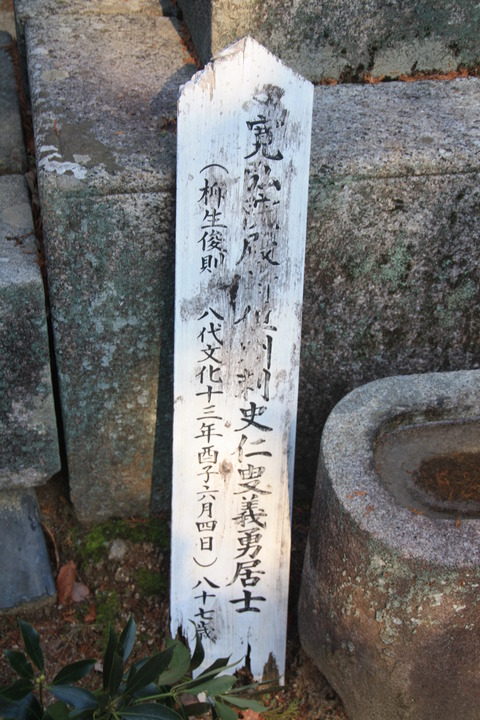 寛弘院殿前但州刺史仁叟義勇居士
(柳生俊則 八代文化十三年酉子六月四日)八十七歳